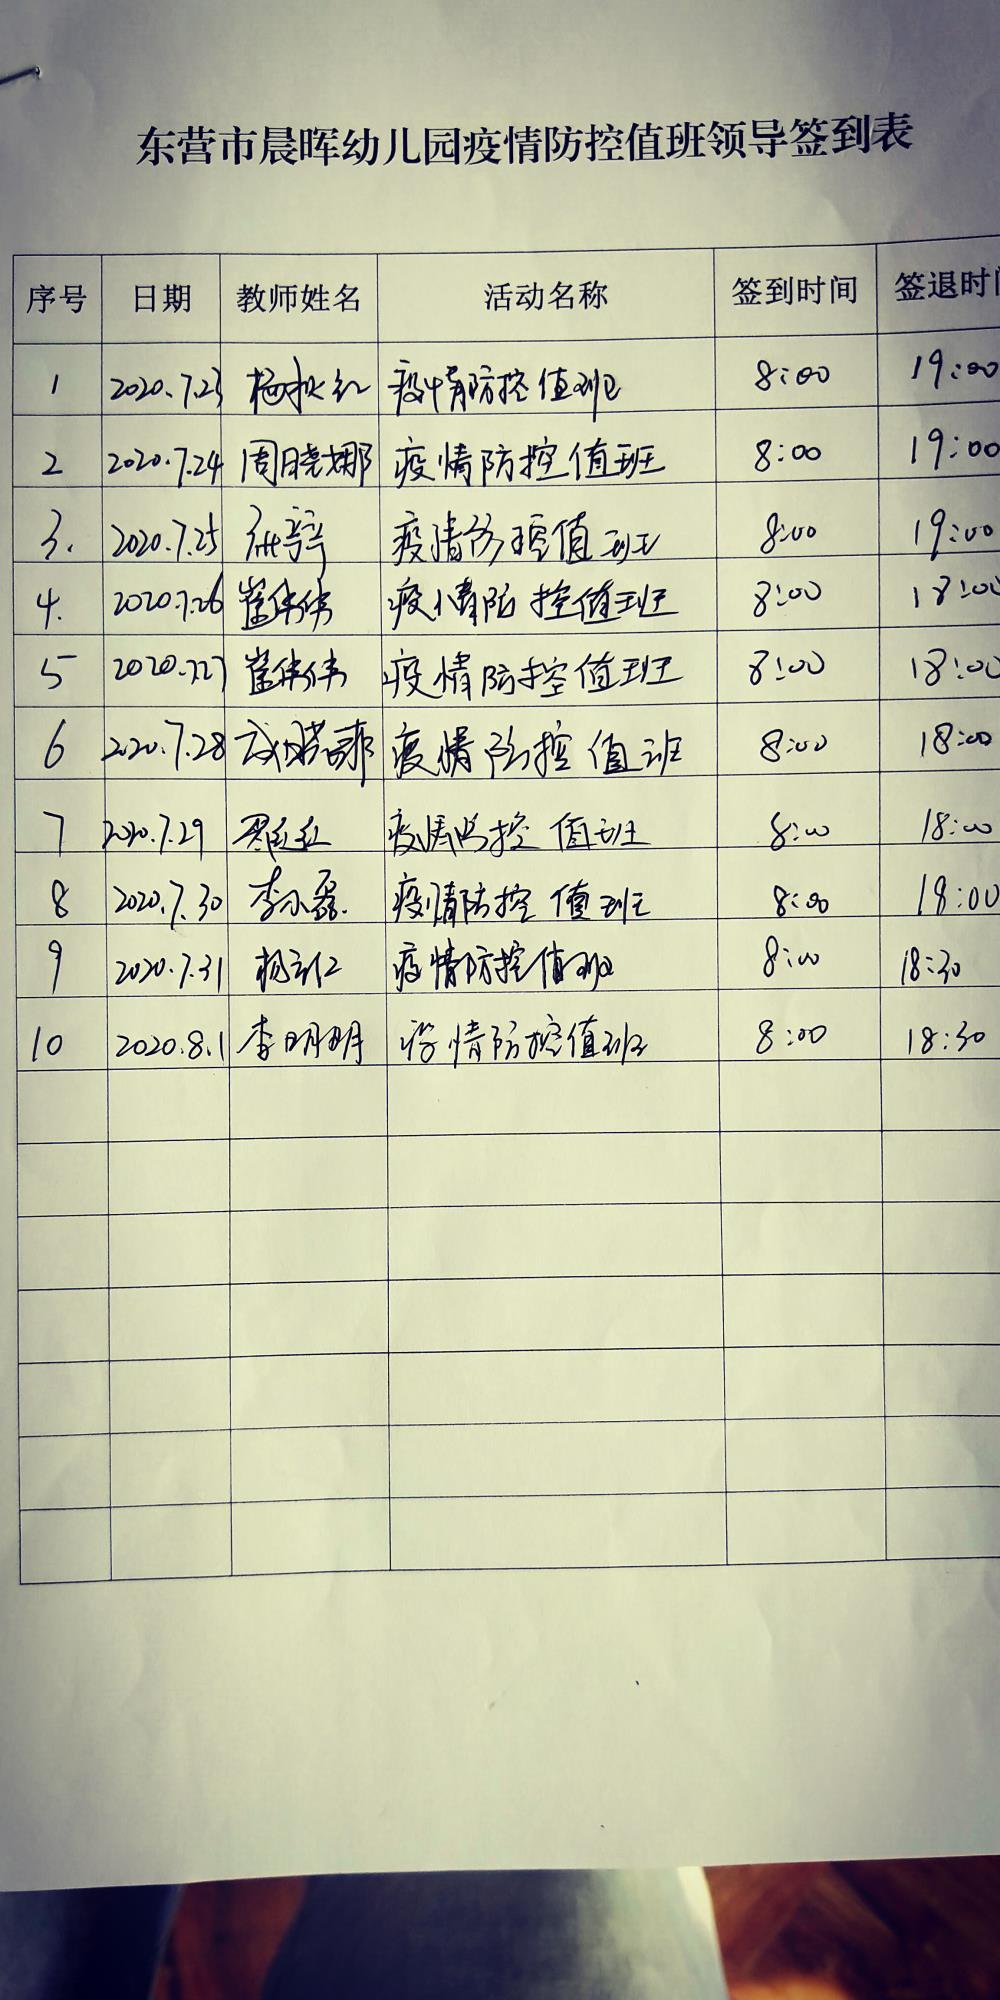 东营市晨晖幼儿园疫情防控值班领导签到表
序号 日期 教师姓名 活动名称 签到时间 签退时间
1 2020.7.23 杨秋红 疫情防控值班 8:00 19:00
2 2020.7.24 周晓娜 疫情防控值班 8:00 19:00
3. 2020.7.25 疫情防控值班 8:00 19:00
4. 2020.7.26 崔伟伟 疫情防控值班 8:00 18:00
5 2020.7.27 崔伟伟 疫情防控值班 8:00 18:00
6 2020.7.28 疫情防控值班 8:00 18:00
7 2020.7.29 疫情防控值班 8:00 18:00
8 2020.7.30 李小磊. 疫情防控值班 8:00 18:00
9 2020.7.31 疫情防控值班 8:00 18:30
10 2020.8.1 李明明 疫情防控值班 8:00 18:30